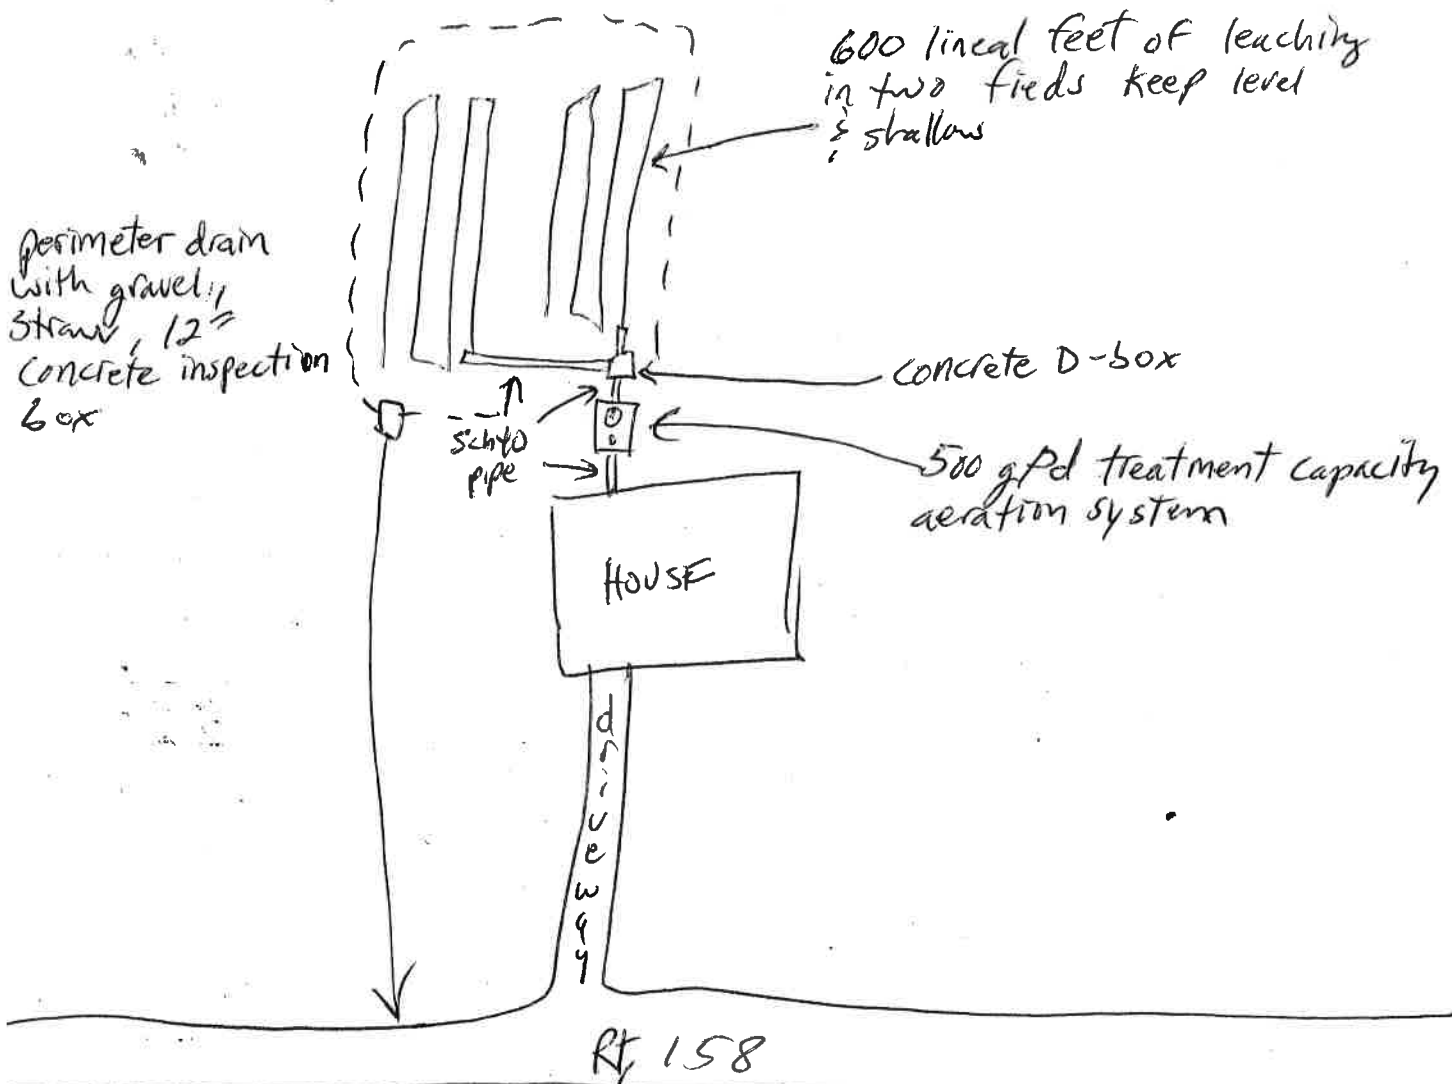 600 lineal feet of leaching
in two fieds keep level
& shallow
perimeter drain
with gravel,
straw, 12"
concrete inspection
box
concrete D-box
sch40
pipe
500 gPd treatment capacity
aeration system
HOUSE
driveway
Rt, 158